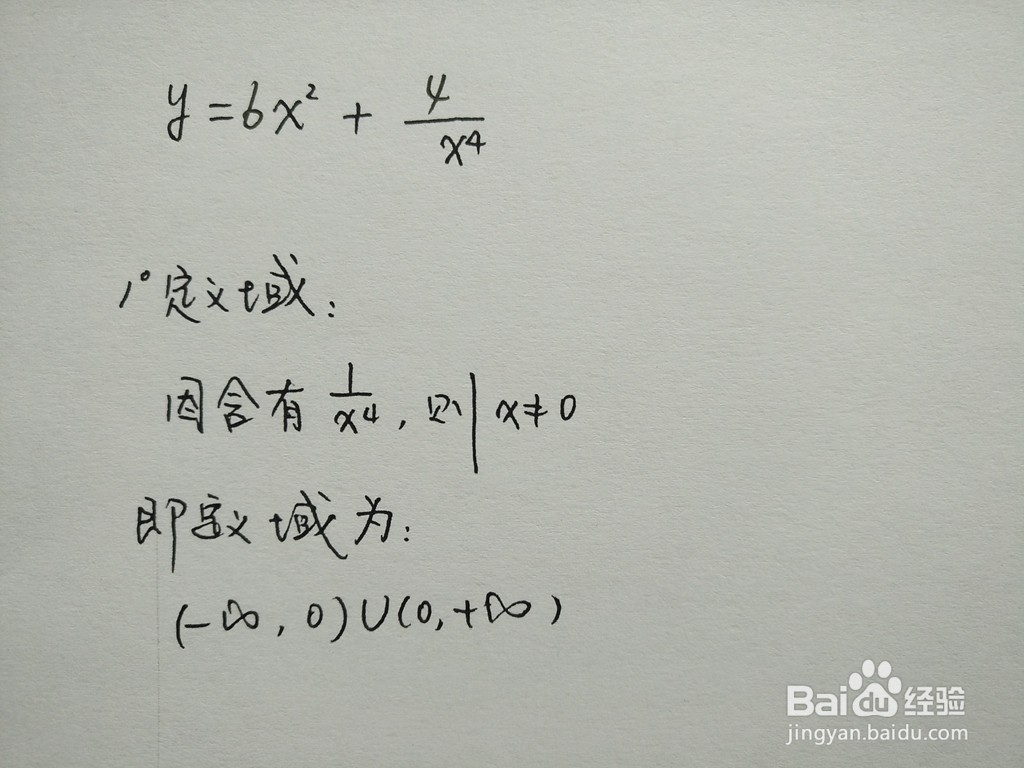 y = 6x² + 4/x⁴
1° 定义域：
因含有 1/x⁴，则 | x≠0
即定义域为：
(-∞, 0)∪(0,+∞)
Baidu经验
jingyan.baidu.com